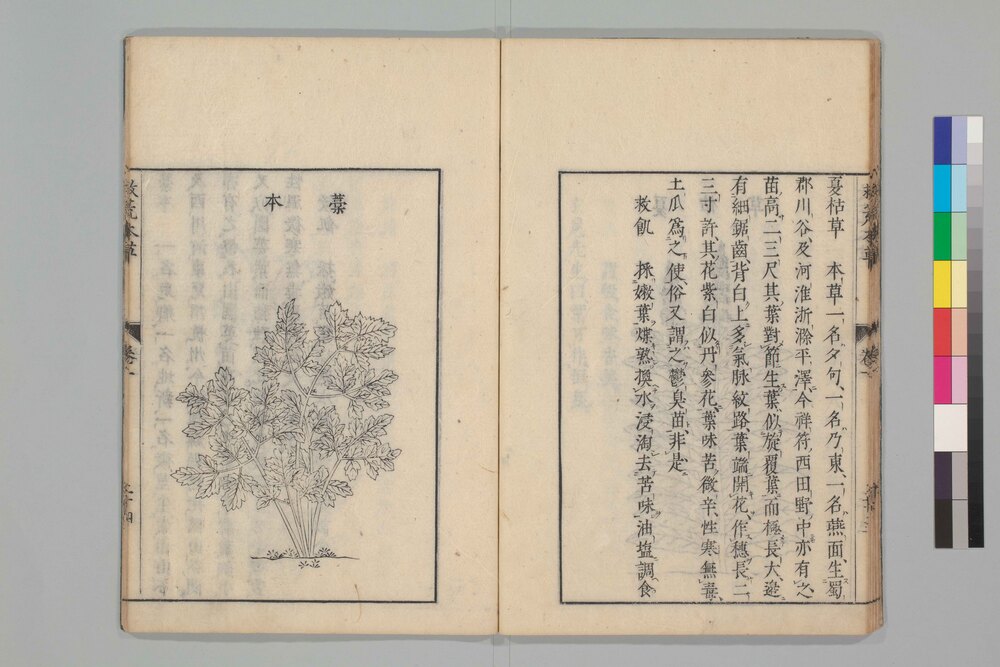 夏枯草 本草一名夕句、一名乃東、一名燕面、生蜀
郡川谷及河淮浙滁平澤今祥符西田野中亦有之
苗高二三尺其葉對節生葉似旋覆葉而極長大邊
有細鋸齒背白上多氣脉紋路葉端開花作穗長二
三寸許其花紫白似丹參花葉味苦微辛性寒無毒
土瓜爲之使俗又謂之鬱臭苗非是
救飢 採嫩葉煠熟換水浸淘去苦味油塩調食
救荒本草
卷之
藁本
救荒本草
卷之